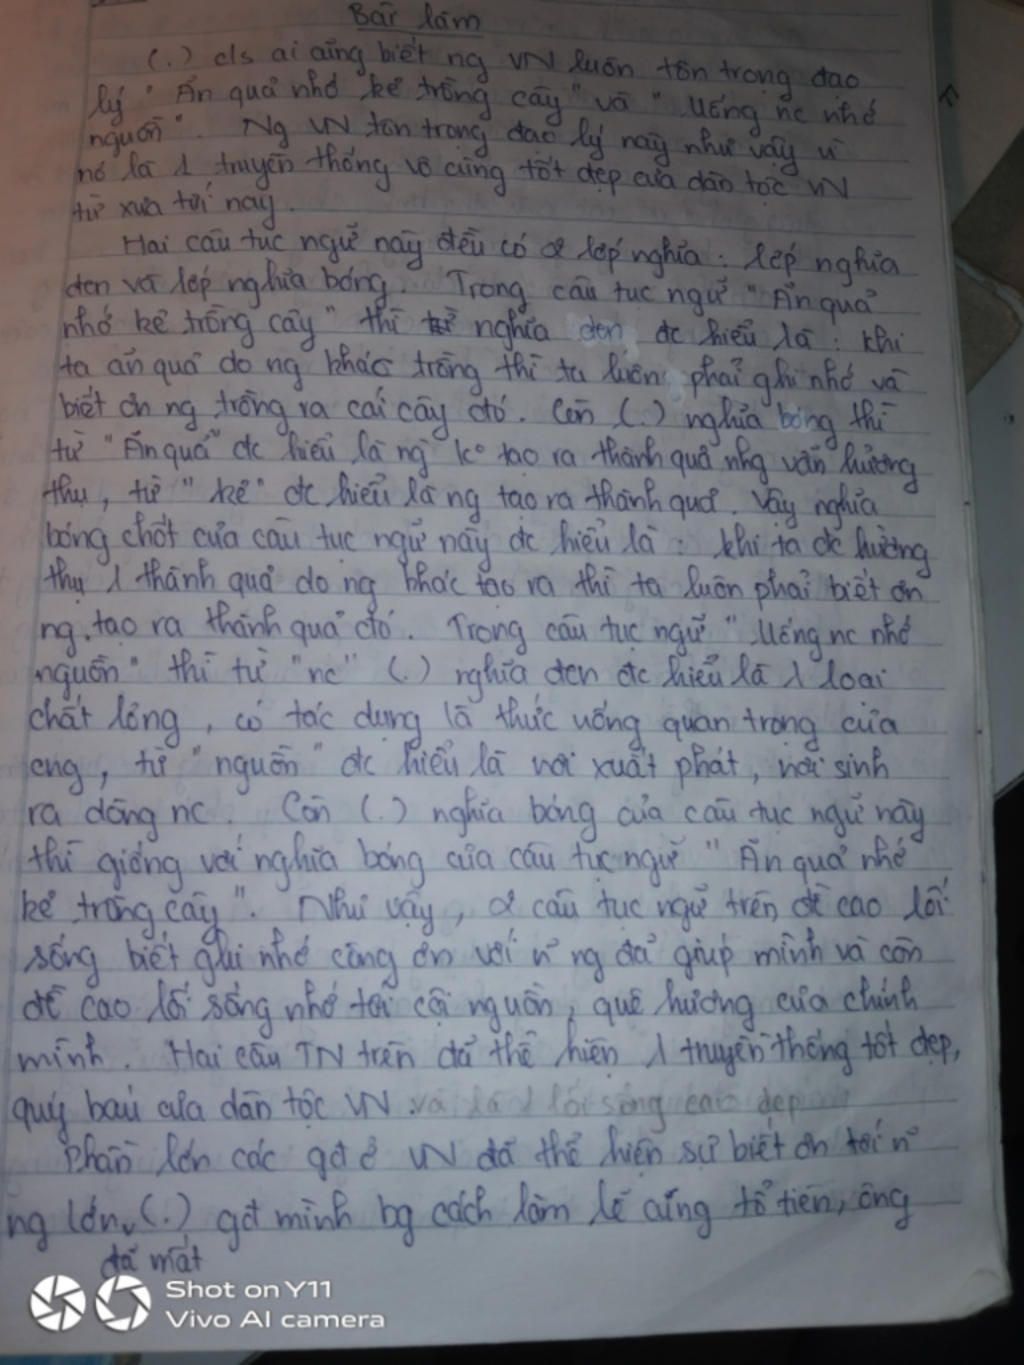 Bài làm
(.) c/s ai cũng biết ng VN luôn tôn trọng đạo
lý "Ăn quả nhớ kẻ trồng cây" và "Uống nc nhớ
nguồn". Ng VN tôn trọng đạo lý này như vậy vì
nó là 1 truyền thống vô cùng tốt đẹp của dân tộc VN
từ xưa tới nay.
Hai câu tục ngữ này đều có 2 lớp nghĩa: lớp nghĩa
đen và lớp nghĩa bóng. Trong câu tục ngữ "Ăn quả
nhớ kẻ trồng cây" thì nghĩa đen đc hiểu là: khi
ta ăn quả do ng khác trồng thì ta luôn phải ghi nhớ và
biết ơn ng trồng ra cái cây đó. Còn (.) nghĩa bóng thì
từ "Ăn quả" đc hiểu là ng ko tạo ra thành quả nhg vẫn hưởng
thụ, từ "kẻ" đc hiểu là ng tạo ra thành quả. Vậy nghĩa
bóng chốt của câu tục ngữ này đc hiểu là: khi ta đc hưởng
thụ 1 thành quả do ng khác tạo ra thì ta luôn phải biết ơn
ng tạo ra thành quả đó. Trong câu tục ngữ "Uống nc nhớ
nguồn" thì từ "nc" (.) nghĩa đen đc hiểu là 1 loại
chất lỏng, có tác dụng là thức uống quan trọng của
cng, từ "nguồn" đc hiểu là nơi xuất phát, nơi sinh
ra dòng nc. Còn (.) nghĩa bóng của câu tục ngữ này
thì giống với nghĩa bóng của câu tục ngữ "Ăn quả nhớ
kẻ trồng cây". Như vậy, 2 câu tục ngữ trên đề cao lối
sống biết ghi nhớ công ơn với n~ ng đã giúp mình và còn
đề cao lối sống nhớ tới cội nguồn, quê hương của chính
mình. Hai câu TN trên đã thể hiện 1 truyền thống tốt đẹp,
quý báu của dân tộc VN và là 1 lối sống cao đẹp
Phần lớn các gđ ở VN đã thể hiện sự biết ơn tới n~
ng lớn (.) gđ mình bg cách làm lễ cúng tổ tiên, ông
đã mất
Shot on Y11
Vivo AI camera